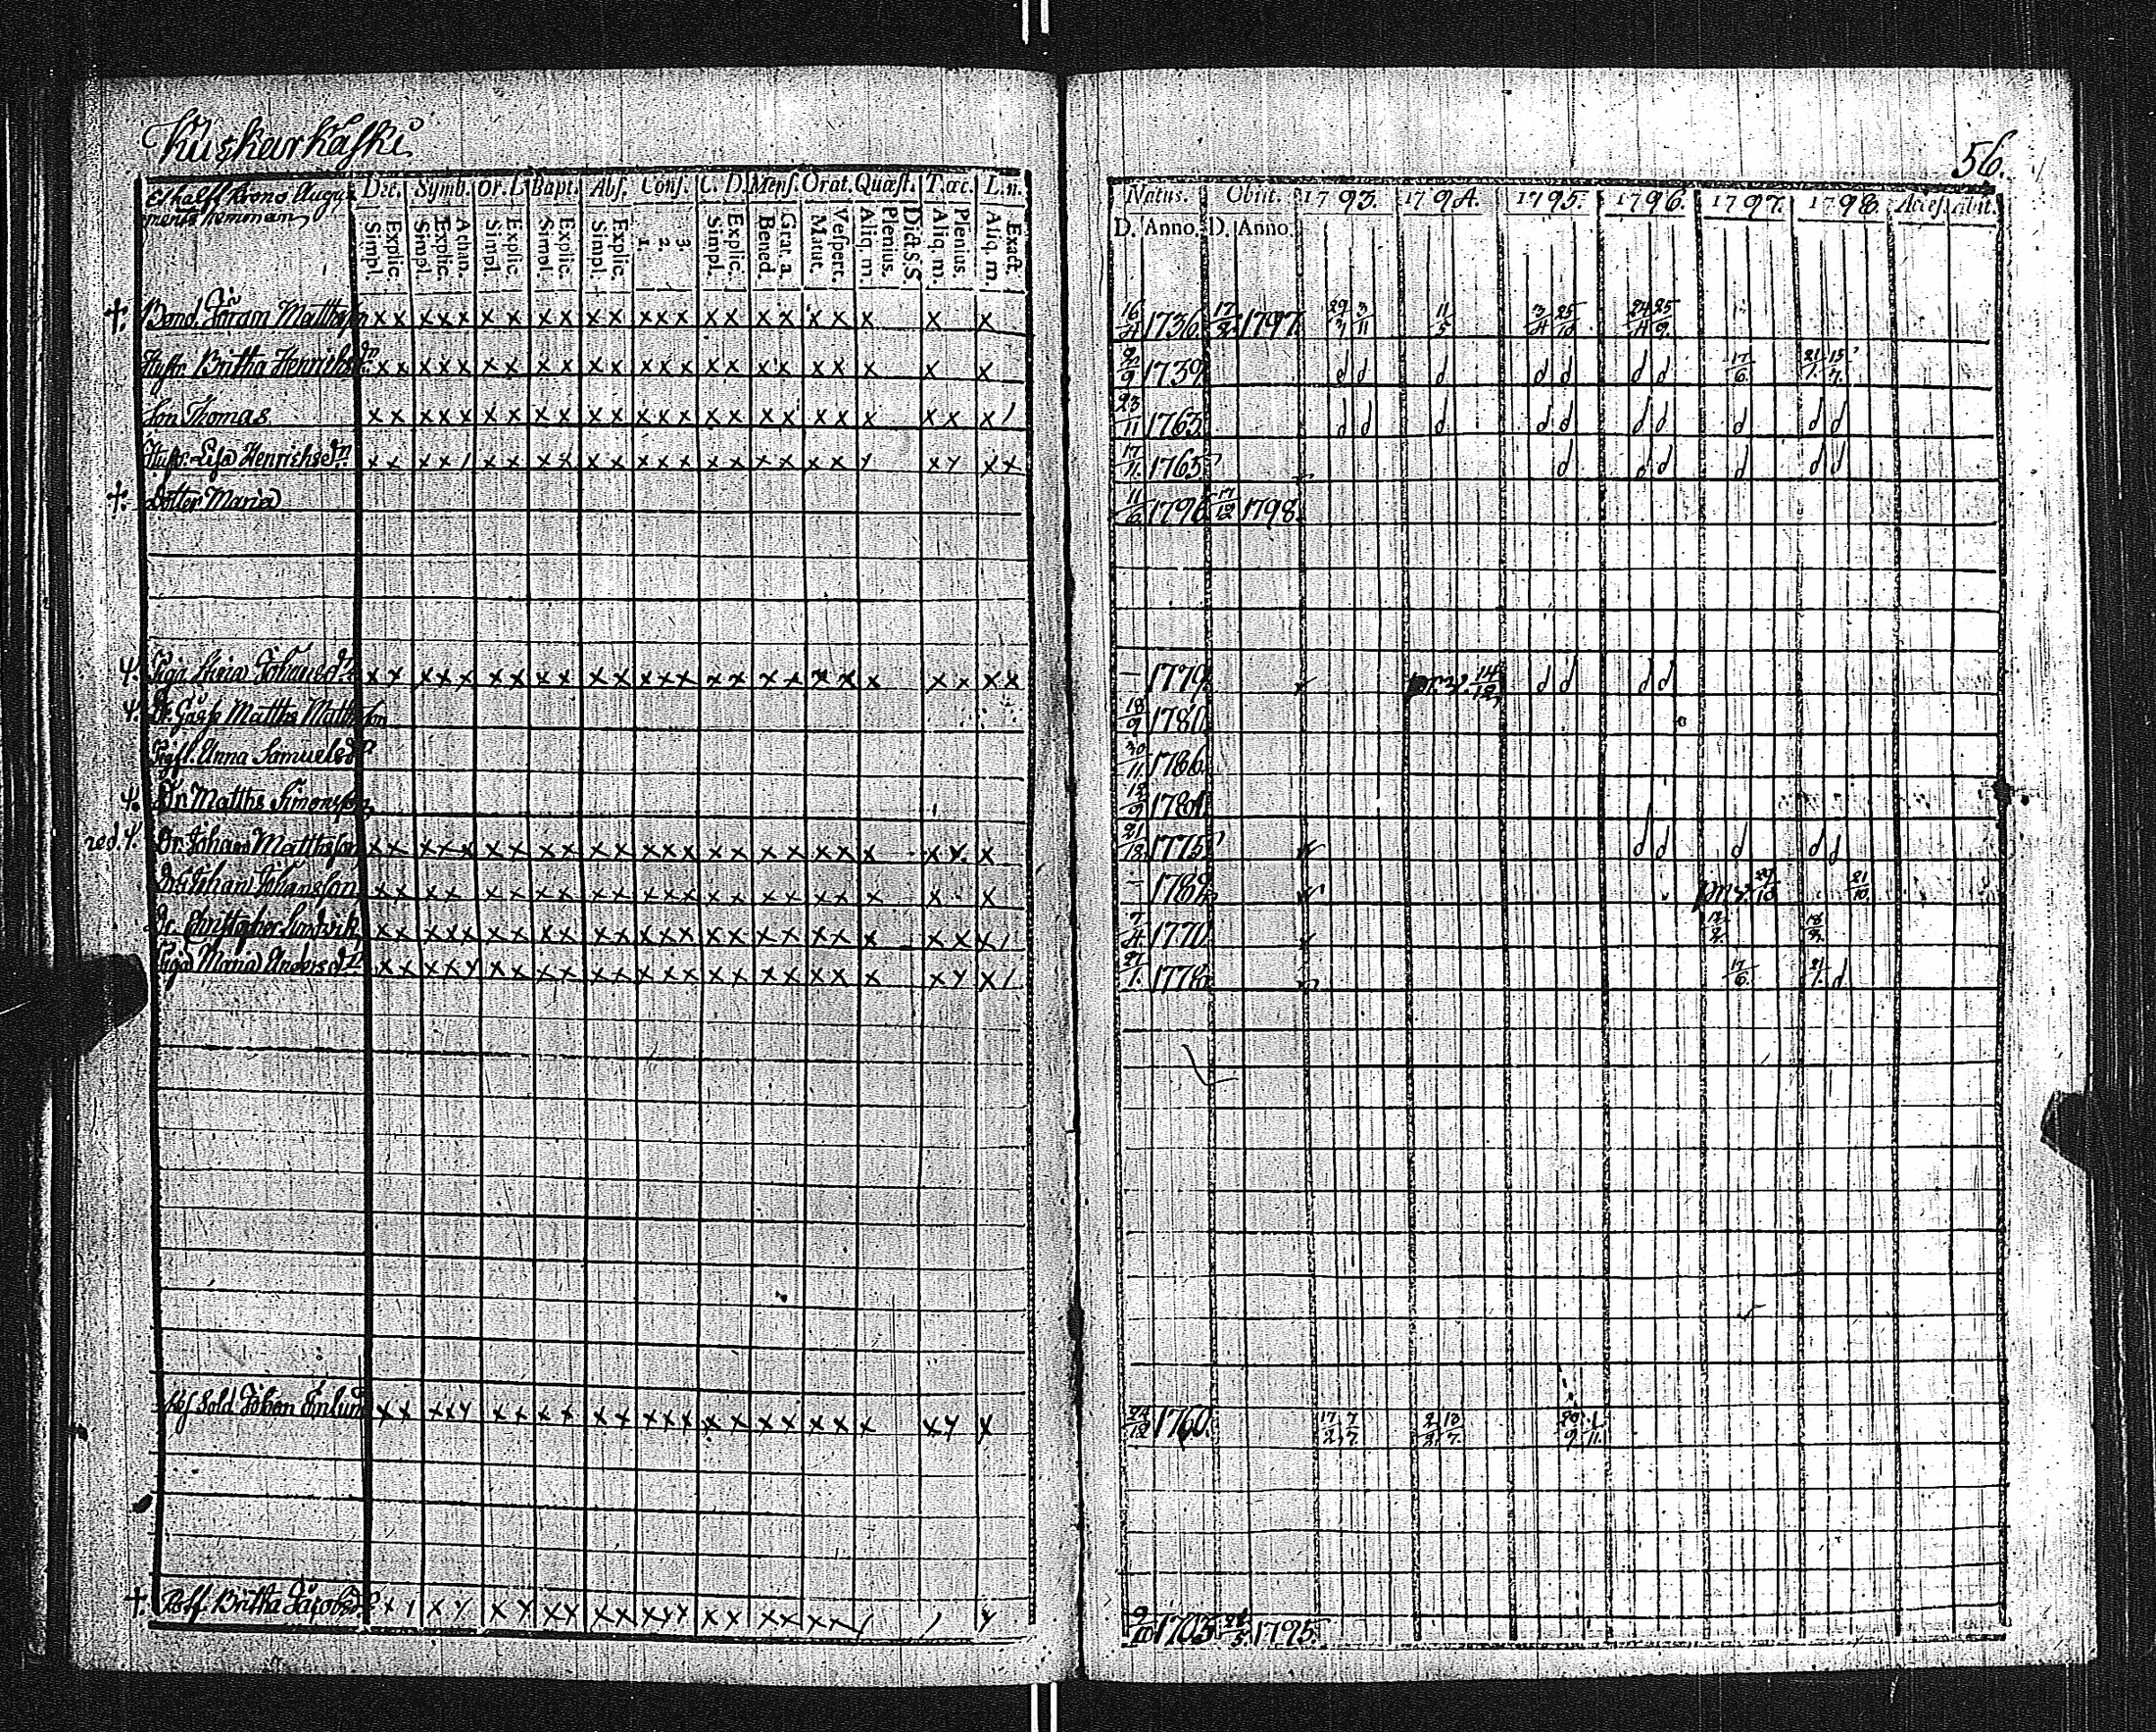 Kuskarkaski
56.
Et halft Krono Augu-
ments hemman
Dec. Symb. Or. D Bapt. Abs. Conf. C. D. Mens. Orat. Quæst. T. ac. L. n.
Simpl. Explic. Simpl. Explic. Athan. Simpl. Explic. Simpl. Explic. Simpl. Explic. 1. 2. 3. Simpl. Explic. Bened. Grat. a. Matut. Vespert. Aliq. m. Plenius. Dict. S.S. Aliq. m. Plenius. Aliq. m. Exact.
Natus. Obiit. 1793. 1794. 1795. 1796. 1797. 1798. Acces. Abit.
D. Anno. D. Anno.
†. Bond. Jöran Matthsson x x x x x x x x x x x x x x x x x x x x x x x x
16/4 1736. 17/2 1797. 29/3 3/11 11/5 3/4 25/10 24/4 25/9
Hustr. Britha Henrichsdr. x x x x x x x x x x x x x x x x x x x x x x x
2/9 1739. d d d d d d d 17/6 21/1 15/7
Son Thomas x x x x x x x x x x x x x x x x x x x x x x x x x /
23/11 1763. d d d d d d d d d d
Hustr. Lisa Henrichsdr. x x x x / x x x x x x x x x x x x x x x x x x x x x
17/11 1765. d d d d d d
†. Dotter Maria
11/6 1796. 17/12 1798.
Piga Maria Johansdr. x x x x x x x x x x x x x x x x x x x x x x x x x
— 1779. pr. 14/12 d d d d
Matths Matthsson
18/9 1780.
Anna Samuelsdr.
30/11 1786.
Dr. Matths Simonsson
12/9 1781.
Dr. Johan Matthsson x x x x x x x x x x x x x x x x x x x x x x x x
21/12 1775. d d d d d
Dr. Johan Johansson x x x x x x x x x x x x x x x x x x x x x x
— 1782. 29/10 21/10
Dr. Christopher Lundvik x x x x x x x x x x x x x x x x x x x x x x x x x /
7/4 1770. 12/2 18/2
Piga Maria Andersdr. x x x x x x x x x x x x x x x x x x x x x x x x x /
27/1 1778. 17/6 21/1 d
Sold. Johan Enlund x x x x x x x x x x x x x x x x x x x x x x x x
24/12 1760. 17/2 7/7 2/2 13/7 20/9 1/11
†. Britha Jacobsdr. x / x x x x x x x x x x x x x x x x x / / x
9/10 1705. 24/5 1795.